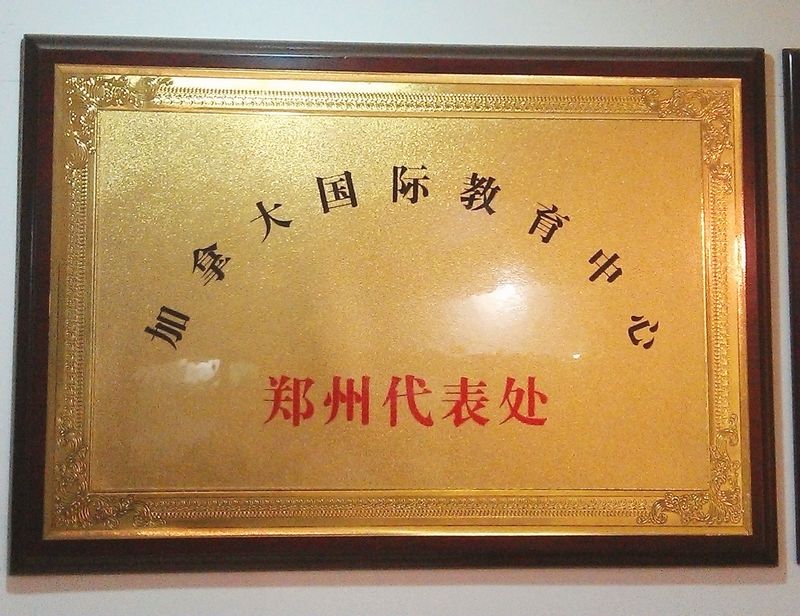 加拿大国际教育中心
郑州代表处